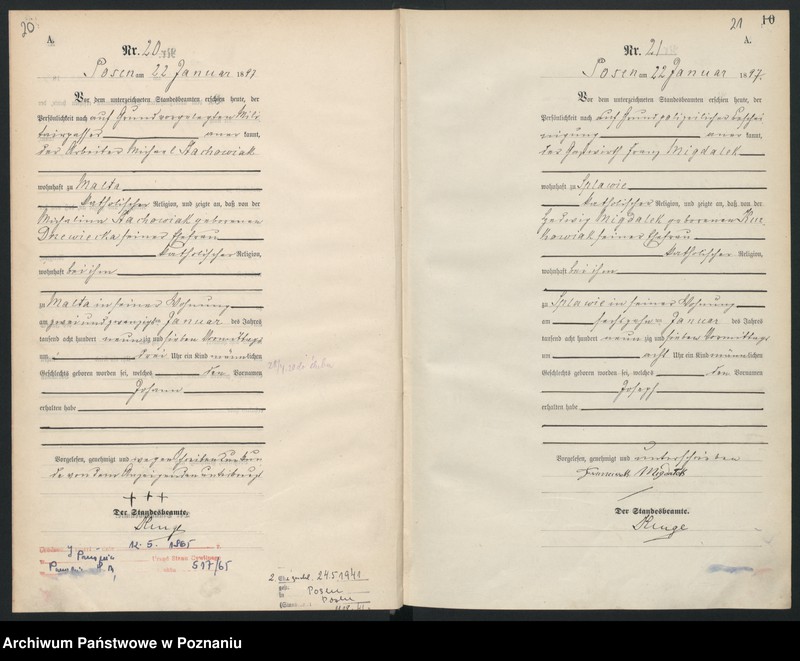 20
A.
Nr. 20
Posen am 22 Januar 1897
Vor dem unterzeichneten Standesbeamten erschien heute, der
Persönlichkeit nach auf Grund vorgelegten Mili-
tairpasses anerkannt,
der Arbeiter Michael Stachowiak
wohnhaft zu Malta
katholischer Religion, und zeigte an, daß von der
Michalina Stachowiak geborenen
Drzewiecka seiner Ehefrau
katholischer Religion,
wohnhaft bei ihm
zu Malta in seiner Wohnung
am zwei und zwanzigsten Januar des Jahres
tausend acht hundert neunzig und sieben Vormittags
um drei Uhr ein Kind männlichen
Geschlechts geboren worden sei, welches den Vornamen
Johann
erhalten habe
Vorgelesen, genehmigt und wegen Schreibensunkun-
de von dem Anzeigenden unterkreuzt
+++
Der Standesbeamte.
Kluge
12. 5. 1965
Urząd Stanu Cywilnego
517/65
2. 24.5.1941
Posen
Posen
21
10
A.
Nr. 21
Posen am 22 Januar 1897.
Vor dem unterzeichneten Standesbeamten erschien heute, der
Persönlichkeit nach auf Grund polizeilicher Beschei-
nigung anerkannt,
der Gastwirth Franz Migdalek
wohnhaft zu Splawie
katholischer Religion, und zeigte an, daß von der
Hedwig Migdalek geborenen Kur-
kowiak seiner Ehefrau
katholischer Religion,
wohnhaft bei ihm
zu Splawie in seiner Wohnung
am sechszehnten Januar des Jahres
tausend acht hundert neunzig und sieben Vormittags
um acht Uhr ein Kind männlichen
Geschlechts geboren worden sei, welches den Vornamen
Joseph
erhalten habe
Vorgelesen, genehmigt und unterschrieben
Migdałek
Der Standesbeamte.
Kluge
Archiwum Państwowe w Poznaniu